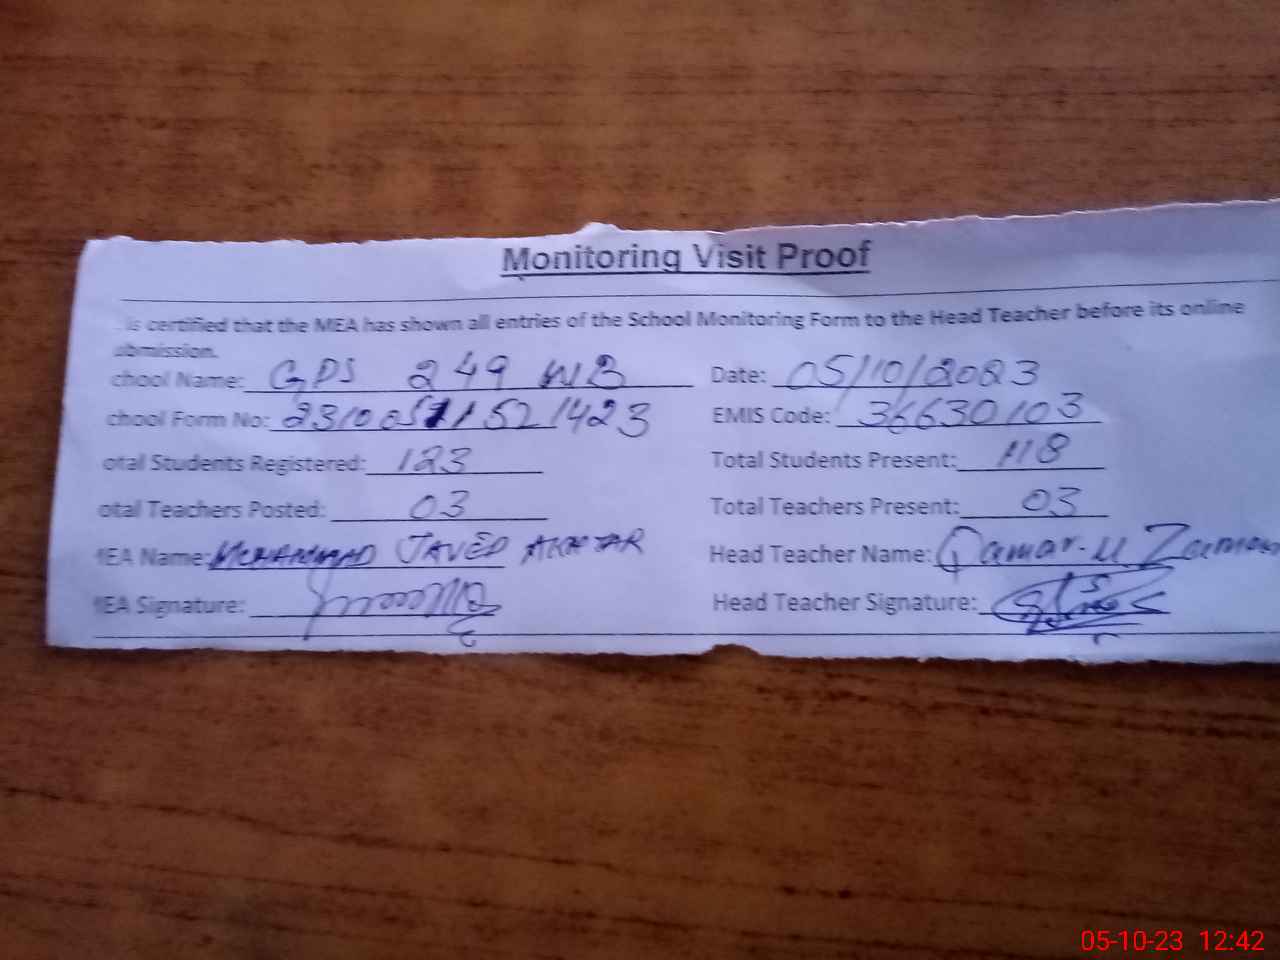 Monitoring Visit Proof
is certified that the MEA has shown all entries of the School Monitoring Form to the Head Teacher before its online
ubmission.
chool Name: GPS 249 WB Date: 05/10/2023
chool Form No: EMIS Code: 36630103
otal Students Registered: 123 Total Students Present: 118
otal Teachers Posted: 03 Total Teachers Present: 03
MEA Name: MUHAMMAD JAVED AKHTAR Head Teacher Name: Qamar-u Zaman
MEA Signature: Head Teacher Signature:
05-10-23 12:42